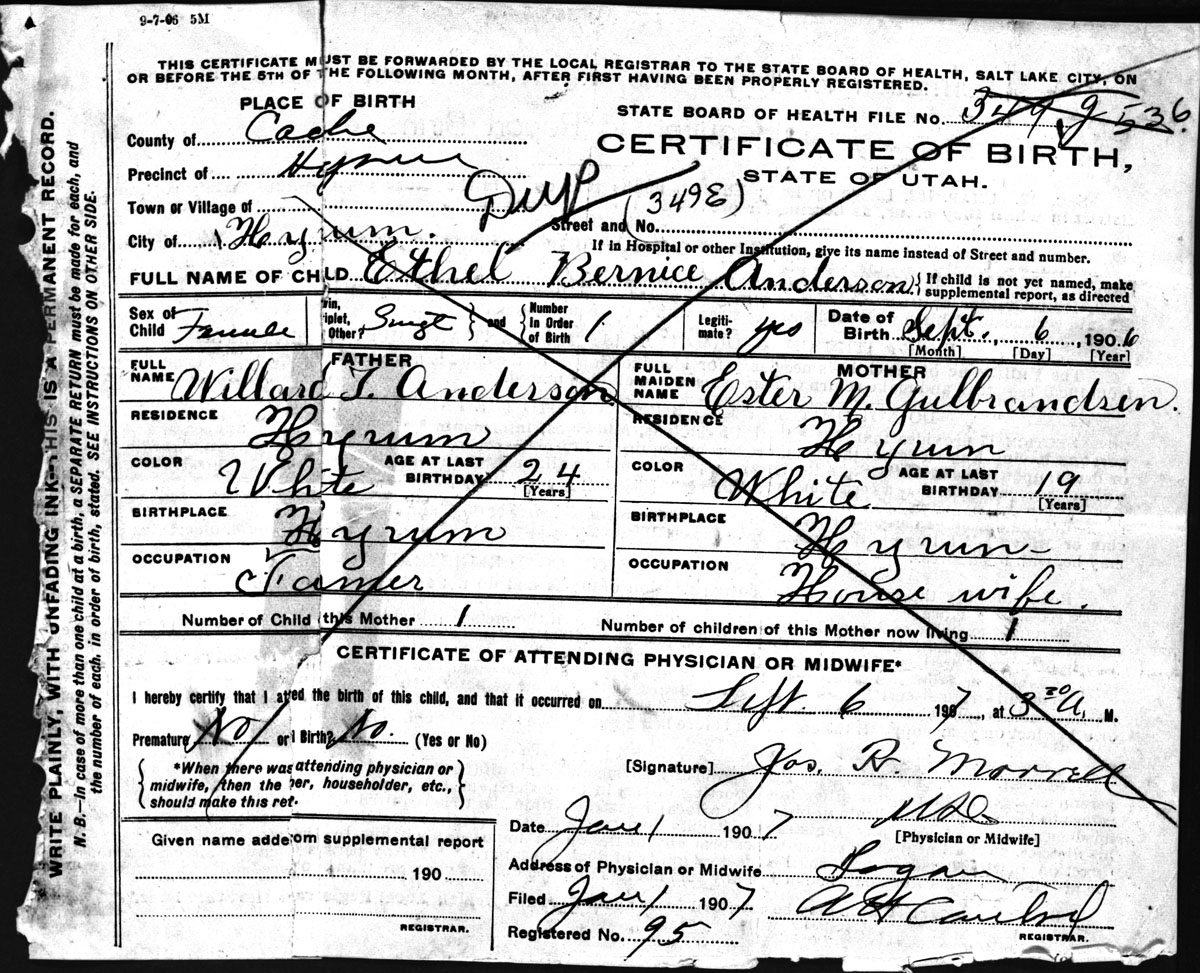 9-7-06 5M
THIS CERTIFICATE MUST BE FORWARDED BY THE LOCAL REGISTRAR TO THE STATE BOARD OF HEALTH, SALT LAKE CITY, ON
OR BEFORE THE 5TH OF THE FOLLOWING MONTH, AFTER FIRST HAVING BEEN PROPERLY REGISTERED.
PLACE OF BIRTH
STATE BOARD OF HEALTH FILE No.
County of Cache
CERTIFICATE OF BIRTH,
Precinct of Hyrum
STATE OF UTAH.
Dup (349E)
Town or Village of
Street and No.
City of Hyrum.
If in Hospital or other Institution, give its name instead of Street and number.
FULL NAME OF CHILD Ethel Bernice Anderson { If child is not yet named, make
supplemental report, as directed
Sex of Child Female
rin, iplet, Other? Singl } and { Number in Order of Birth 1
Legiti- mate? yes
Date of Birth Sept. 6, 1906
[Month] [Day] [Year]
FATHER
FULL NAME Willard T. Anderson
RESIDENCE Hyrum
COLOR White AGE AT LAST BIRTHDAY 24
[Years]
BIRTHPLACE Hyrum
OCCUPATION Farmer
MOTHER
FULL MAIDEN NAME Ester M. Gulbrandsen.
RESIDENCE Hyrum
COLOR White AGE AT LAST BIRTHDAY 19
[Years]
BIRTHPLACE Hyrum
OCCUPATION House wife.
Number of Child this Mother 1 Number of children of this Mother now living 1
CERTIFICATE OF ATTENDING PHYSICIAN OR MIDWIFE*
I hereby certify that I atted the birth of this child, and that it occurred on Sept. 6 1907, at 3 30 A. M.
Premature No or l Birth? No. (Yes or No)
*When there was attending physician or
midwife, then the her, householder, etc.,
should make this ret-
[Signature] Jos. R. Morrell
M.D.
[Physician or Midwife]
Date Jan 1 1907
Given name adde om supplemental report
190
REGISTRAR.
Address of Physician or Midwife Logan
Filed Jan 1 1907
REGISTRAR.
Registered No. 95
WRITE PLAINLY, WITH UNFADING INK—THIS IS A PERMANENT RECORD.
N. B.—In case of more than one child at a birth, a SEPARATE RETURN must be made for each, and
the number of each, in order of birth, stated. SEE INSTRUCTIONS ON OTHER SIDE.